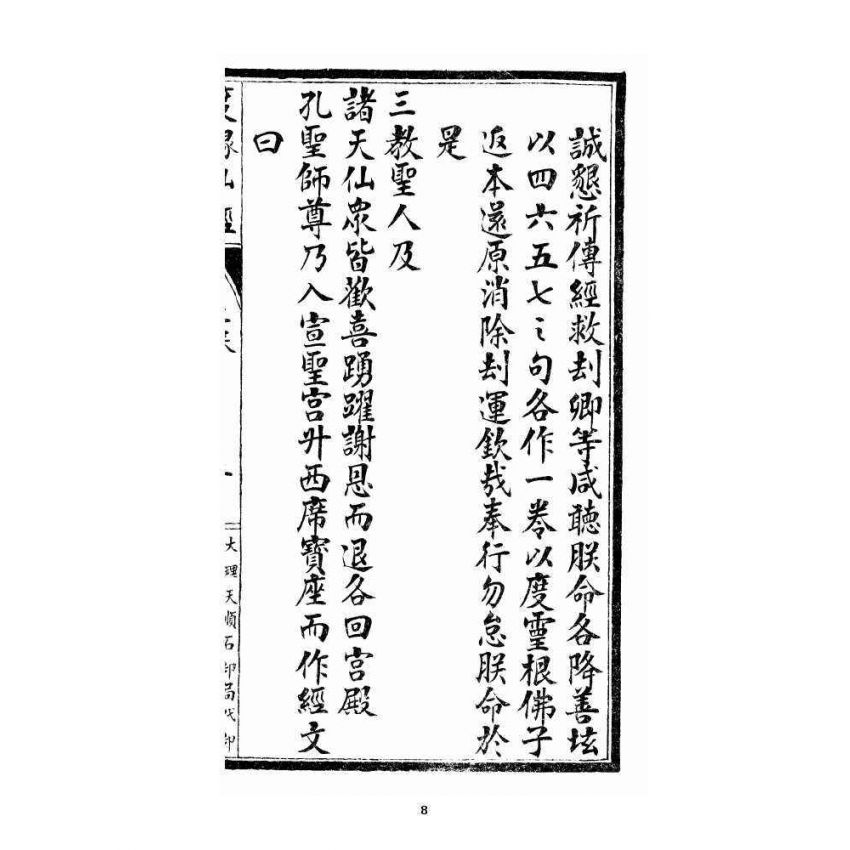 誠懇祈傳經救刦卿等咸聽朕命各降善坛
以四六五七之句各作一卷以度靈根佛子
返本還原消除刦運欽哉奉行勿怠朕命於
是
三教聖人及
諸天仙眾皆歡喜踴躍謝恩而退各回宮殿
孔聖師尊乃入宣聖宮升西席寶座而作經文
曰
仙經
大理天順石印局代印
8